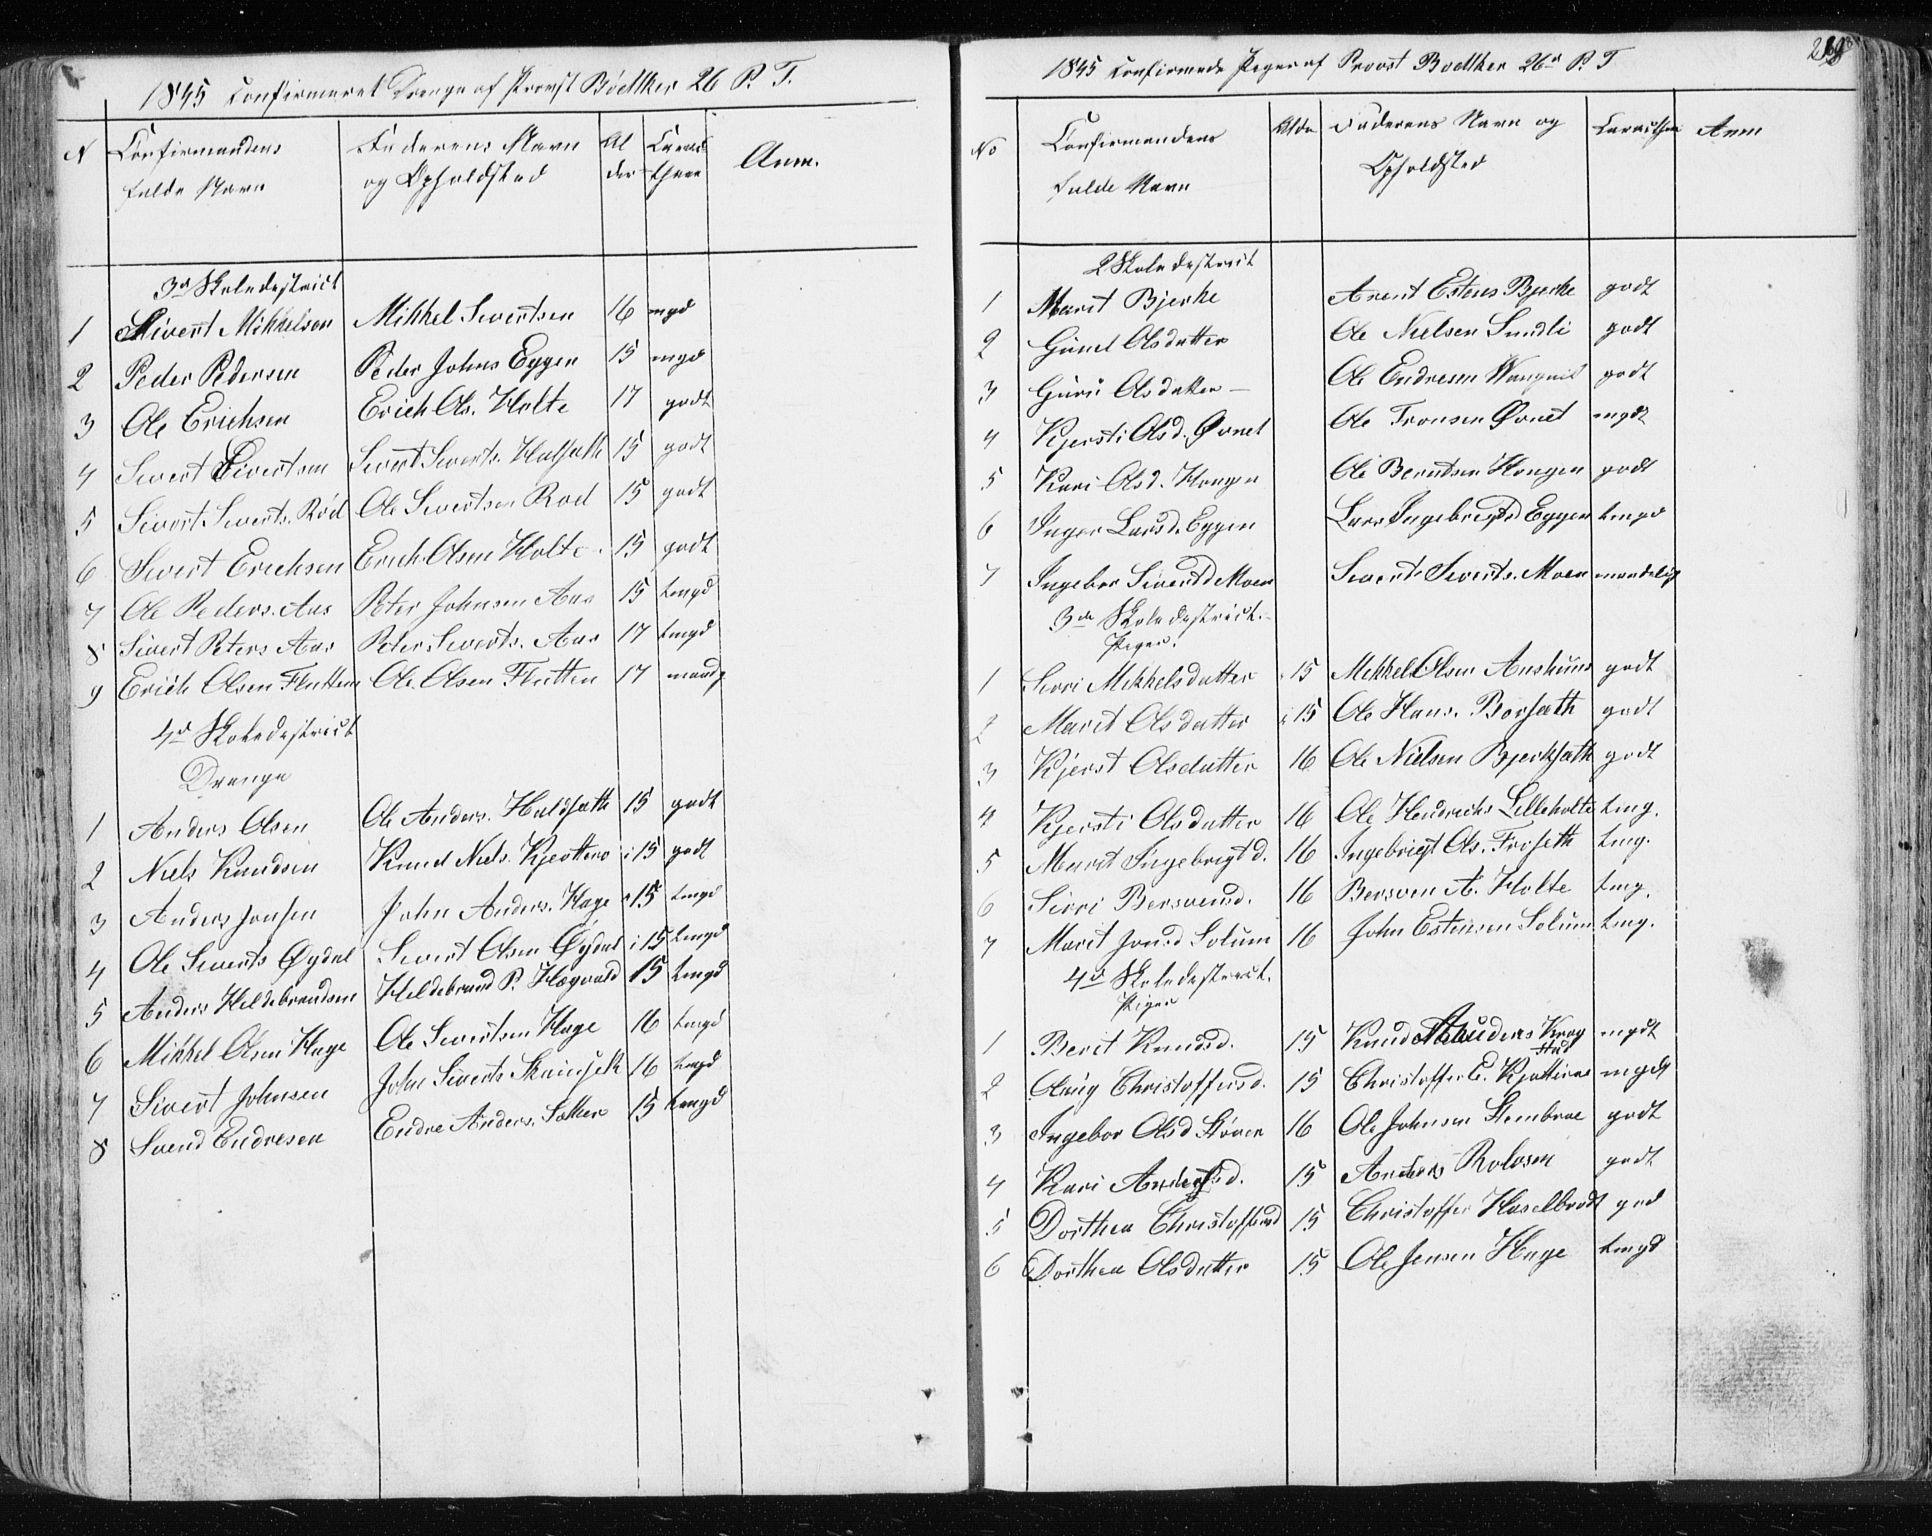 1845 Confirmeret Drenge af Provst Bødtker 26 P. T.
N Confirmandens fulde Navn Faderens Navn og Opholdsted Alder Caracthere Anm.
3d Skoledestrict
1 Sivert Mikkelsen Mikkel Sivertsen 16 mgd
2 Peder Pedersen Peder Johns Eggen 15 mgd
3 Ole Erichsen Erich Ols. Holte 17 godt
4 Sivert Sivertsen Sivert Siverts. 15 godt
5 Sivert Siverts. Rød Ole Sivertsen Rød 15 godt
6 Sivert Erichsen Erich Olsen Holte 15 godt
7 Ole Peders. Aas Peter Johnsen Aas 15 tmgd
8 Sivert Peters Aas Peter Siverts. Aas 17 tmgd
9 Erich Olsen Flutten Ole Olsen Flutten 17 maadg
4d Skoledestrict
Drenge
1 Anders Olsen Ole Anders. Haldsæth 15 godt
2 Niels Knudsen Knud Niels. 15 godt
3 Anders Jonsen John Anders. Hage 15 tmgd
4 Ole Siverts Øydal Sivert Olsen Øydal 15 tmgd
5 Anders Hildebrandsen Hildebrand P. Hægvold 15 tmgd
6 Mikkel Olsen Hage Ole Sivertsen Hage 16 tmgd
7 Sivert Johnsen John Siverts 16 tmgd
8 Svend Endresen Endre Anders. 15 tmgd
1845 Confirmede Piger af Provst Bødtker 26d P. T
No Confirmandens fulde Navn Alder Faderens Navn og Opholdsted Caracther Anm
2 Skoledestrict
1 Marit Bjerke Arent Estens Bjerke godt
2 Gunel Olsdatter Ole Nielsen Sundli godt
3 Guru Olsdatter Ole Endresen godt
4 Kjersti Olsd. Øvnet Ole Tronsen Øvnet mgdt
5 Kari Olsd. Haugen Ole Berntsen Haugen godt
6 Inger Larsd. Eggen Lars Ingebrigtsd Eggen tmgd
7 Ingebor Sivertsd Moen Sivert Siverts. Moen maadelig
3de Skoledestrict.
Piger.
1 Sirri Mikkelsdatter 15 Mikkel Olsen Aushuus godt
2 Marit Olsdatter 15 Ole Hans. Borsæth godt
3 Kjerst Olsdatter 16 Ole Nielsen Bjerksæth godt
4 Kjersti Olsdatter 16 Ole Hendrichs Lilleholte tmg.
5 Marit Ingebrigtd. 16 Ingebrigt Ols. Friseth tmg.
6 Sirri Bersvensd. 16 Bersven A. Holte tmg.
7 Marit Jonsd Solum 16 John Estensen Solum tmg.
4d Skoledestrict.
Piger
1 Berit Knudsd. 15 Knud Anders Krog stad mgdt
2 Christoffersd. 15 Christoffer E. mgdt
3 Ingebor Olsd Støver 16 Ole Johnsen Stenbroe godt
4 Kari Andersd. 15 Anders Rolvsen godt
5 Dorthea Christoffersd 15 Christoffer Haselbrodt god
6 Dorthea Olsdatter 15 Ole Jensen Hage tmgd